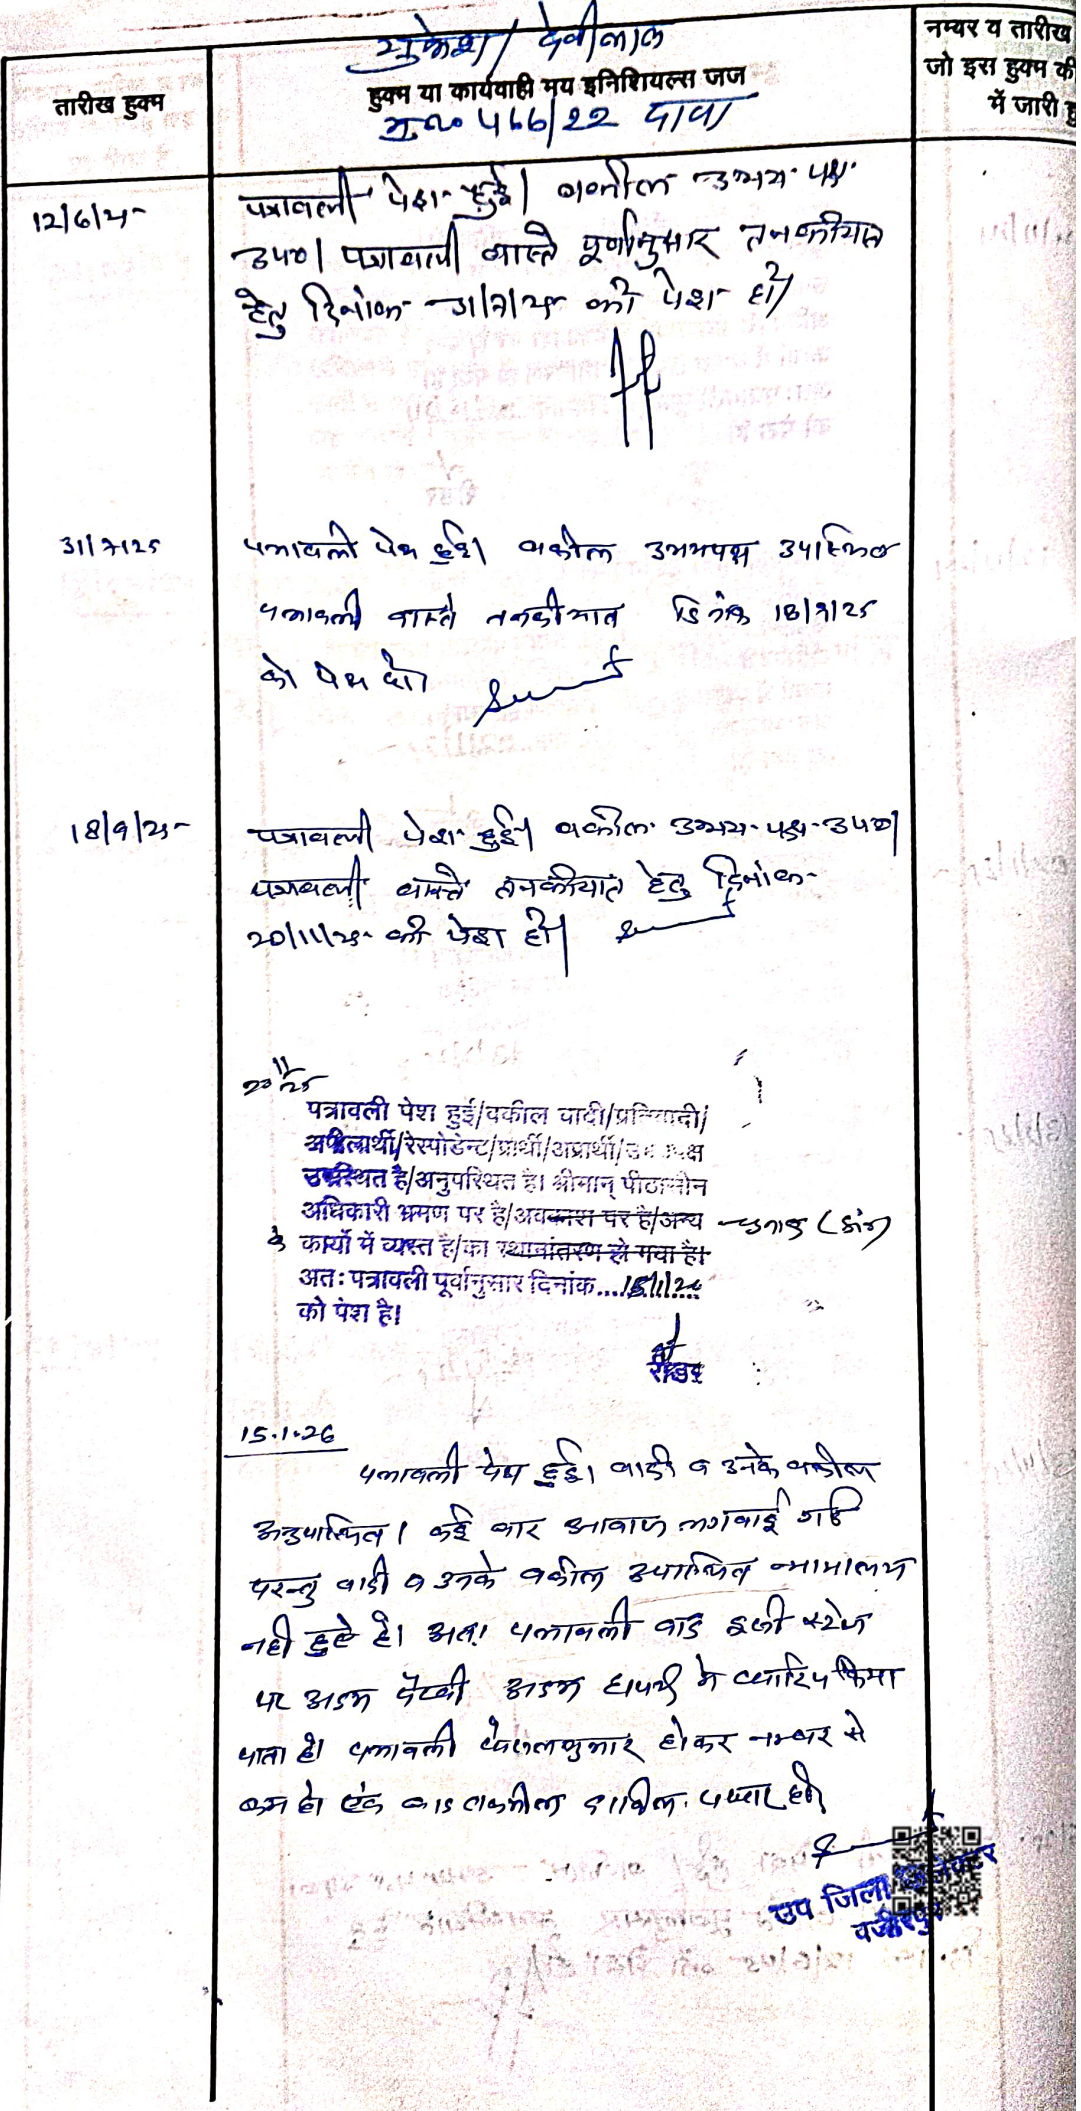 मुकेश / देवीलाल
तारीख हुक्म
हुक्म या कार्यवाही मय इनिशियल्स जज
मु.न० 466/22 दावा
नम्बर व तारीख
जो इस हुक्म की
में जारी हु
12/6/25
पत्रावली पेश हुई। वकील उभय पक्ष
उप०। पत्रावली वास्ते पूर्वानुसार तनकीयात
हेतु दिनांक 31/7/25 को पेश हो।
31/7/25
पत्रावली पेश हुई। वकील उभयपक्ष उपस्थित
पत्रावली वास्ते तनकीयात दिनांक 18/9/25
को पेश हो।
18/9/25
पत्रावली पेश हुई। वकील उभय पक्ष उप०।
पत्रावली वास्ते तनकीयात हेतु दिनांक
20/11/25 को पेश हो।
20/11/25
पत्रावली पेश हुई/वकील वादी/प्रतिवादी/
अपीलार्थी/रेस्पोडेन्ट/प्रार्थी/अप्रार्थी/उभय पक्ष
उपस्थित है/अनुपस्थित है। श्रीमान् पीठासीन
अधिकारी भ्रमण पर है/अवकाश पर है/अन्य
के कार्यो में व्यस्त है/का स्थानांतरण हो गया है।
अतः पत्रावली पूर्वानुसार दिनांक....15/1/26
को पेश है।
रीडर
15.1.26
पत्रावली पेश हुई। वादी व उनके वकील
अनुपस्थित। कई बार आवाज लगवाई गई
परन्तु वादी व उनके वकील उपस्थित न्यायालय
नही हुये है। अतः पत्रावली वाद इसी स्टेज
पर अदम पैरवी अदम हाजरी मे खारिज किया
जाता है। पत्रावली फैसलशुमार होकर नम्बर से
कम हो एंव बाद तकमील दाखिल दफ्तर हो।
उप जिला कलेक्टर
वजीरपुर